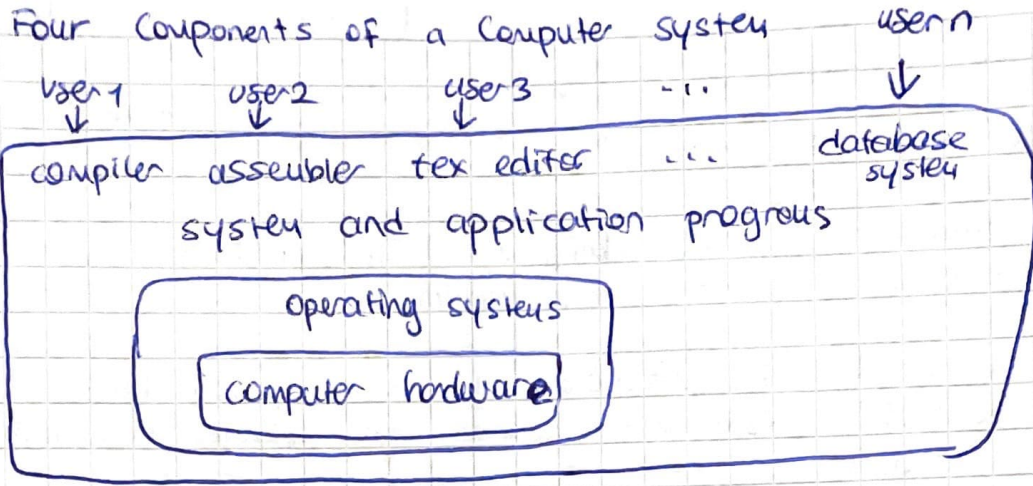 Four Components of a Computer system user n
user 1 user 2 user 3 ...
compiler assembler tex editor ... database
system
system and application programs
operating systems
computer hardware